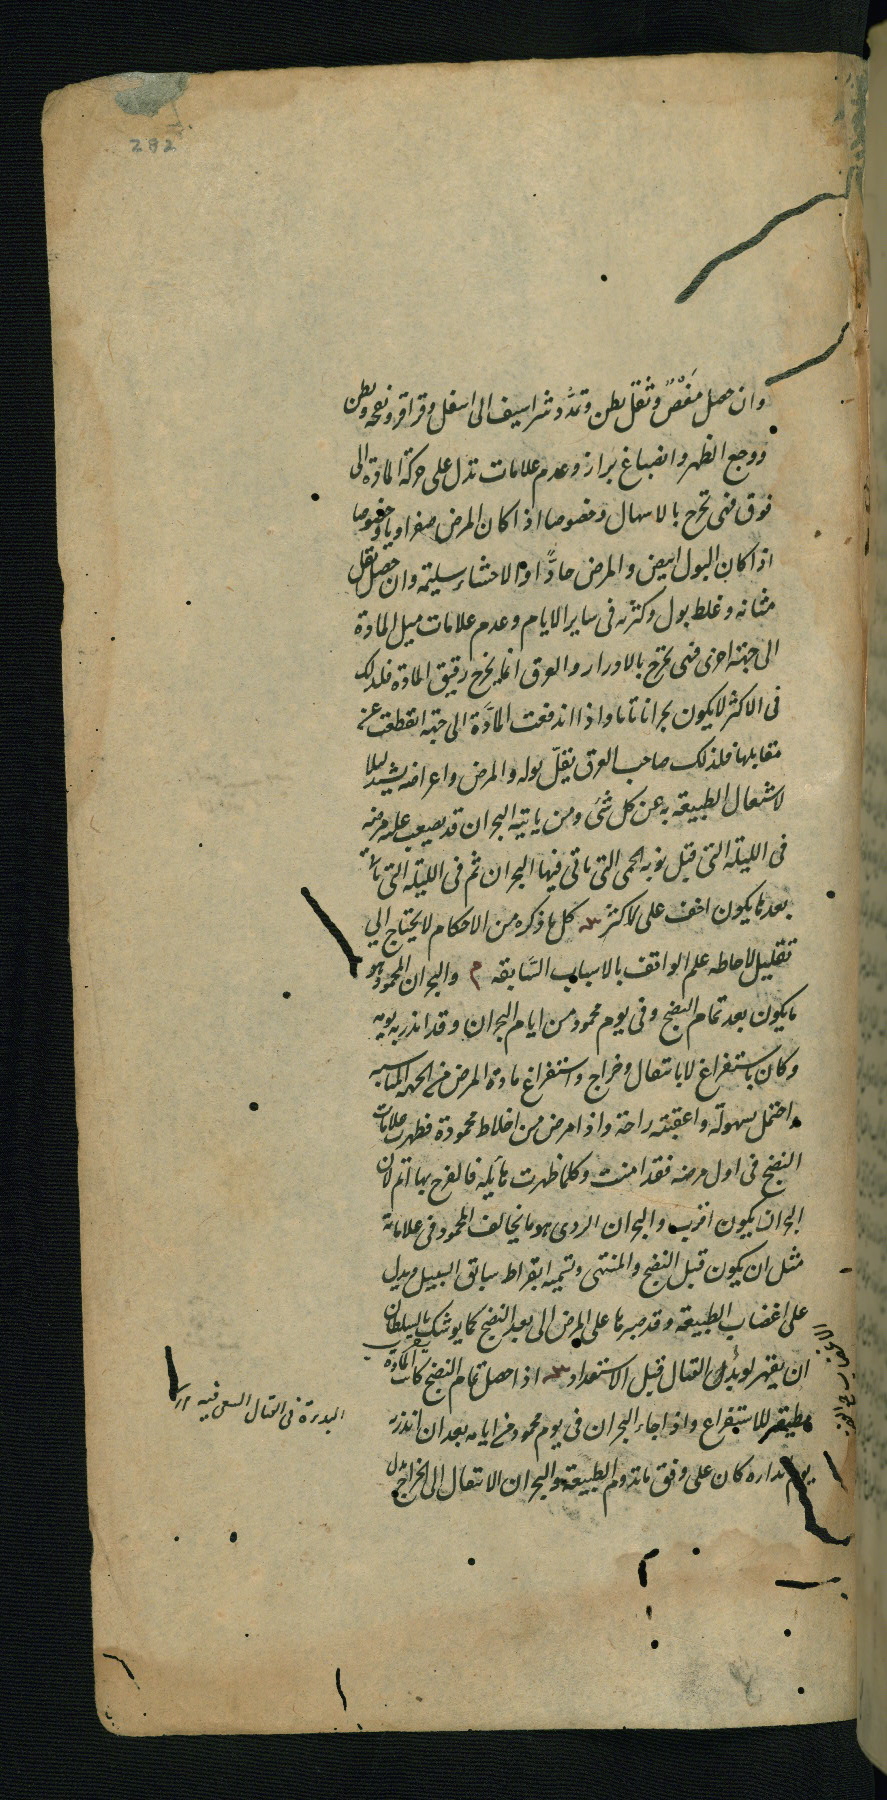 282
وان حصل مَغْصٌ وثقل بطن وتمدّد شراسيف الى اسفل وقراقر ونفخة بطن
ووجع الظهر وانصباغ براز وعدم علامات تدل على حركة المادة الى
فوق فهى تخرج بالاسهال وخصوصا اذا كان المرض صفراويا وخصوصا
اذا كان البول ابيض والمرض حادًّا والاحشاء سليمة وان حصل ثقل
مثانه وغلظ بول وكثرته فى ساير الايام وعدم علامات ميل المادة
الى جهة اخرى فهى تخرج بالادرار والعرق انما يخرج رقيق المادة فلذلك
فى الاكثر لايكون بحرانا تاما واذا اندفعت المادَّة الى جهة انقطعت عن
مقابلها فلذلك صاحب العرق يقلّ بوله والمرض واعراضه يشتد ليلا
لاشتغال الطبيعة به عن كل شئ ومن ياتيه البحران قد يصعب عليه مرضه
فى الليلة التى قبل نوبة الحمى التى ياتى فيها البحران ثم فى الليلة التى
بعدها يكون اخف على الاكثر كل ما ذكره من الاحكام لايحتاج الى
تقليل لاحاطه علم الواقف بالاسباب السَّابقه م والبحران المحمود هو
مايكون بعد تمام النضج وفى يوم محمود من ايام البحران وقد انذر به يومه
وكان باستفراغ لا بانتقال وخراج واستفراغ مادة المرض من الجهة المناسبه
واحتمل بسهولة واعقبته راحة واذا مرض من اخلاط محمودة فظهرت علامات
النضج فى اول مرضه فقد امنت وكلما ظهرت فالفرح بها اتم لان
البحران يكون اقرب والبحران الردى هو ما يخالف المحمود فى علاماته
مثل ان يكون قبل النضج والمنتهى وتسميه ابقراط سابق السبيل ويدل
على اغضاب الطبيعة وقد صبرها على المرض الى بعد النضج كما يوشك بالسلطان
ان يقهر لو بدأ القتال قبل الاستعداد اذا حصل تمام النضج كانت المادة
للاستفراغ واذا جاء البحران فى يوم محمود من ايامه بعد ان انذر به
يوم كان على وفق ما تروم الطبيعة والبحران الانتقال الى الخراج
فى القتال فيه